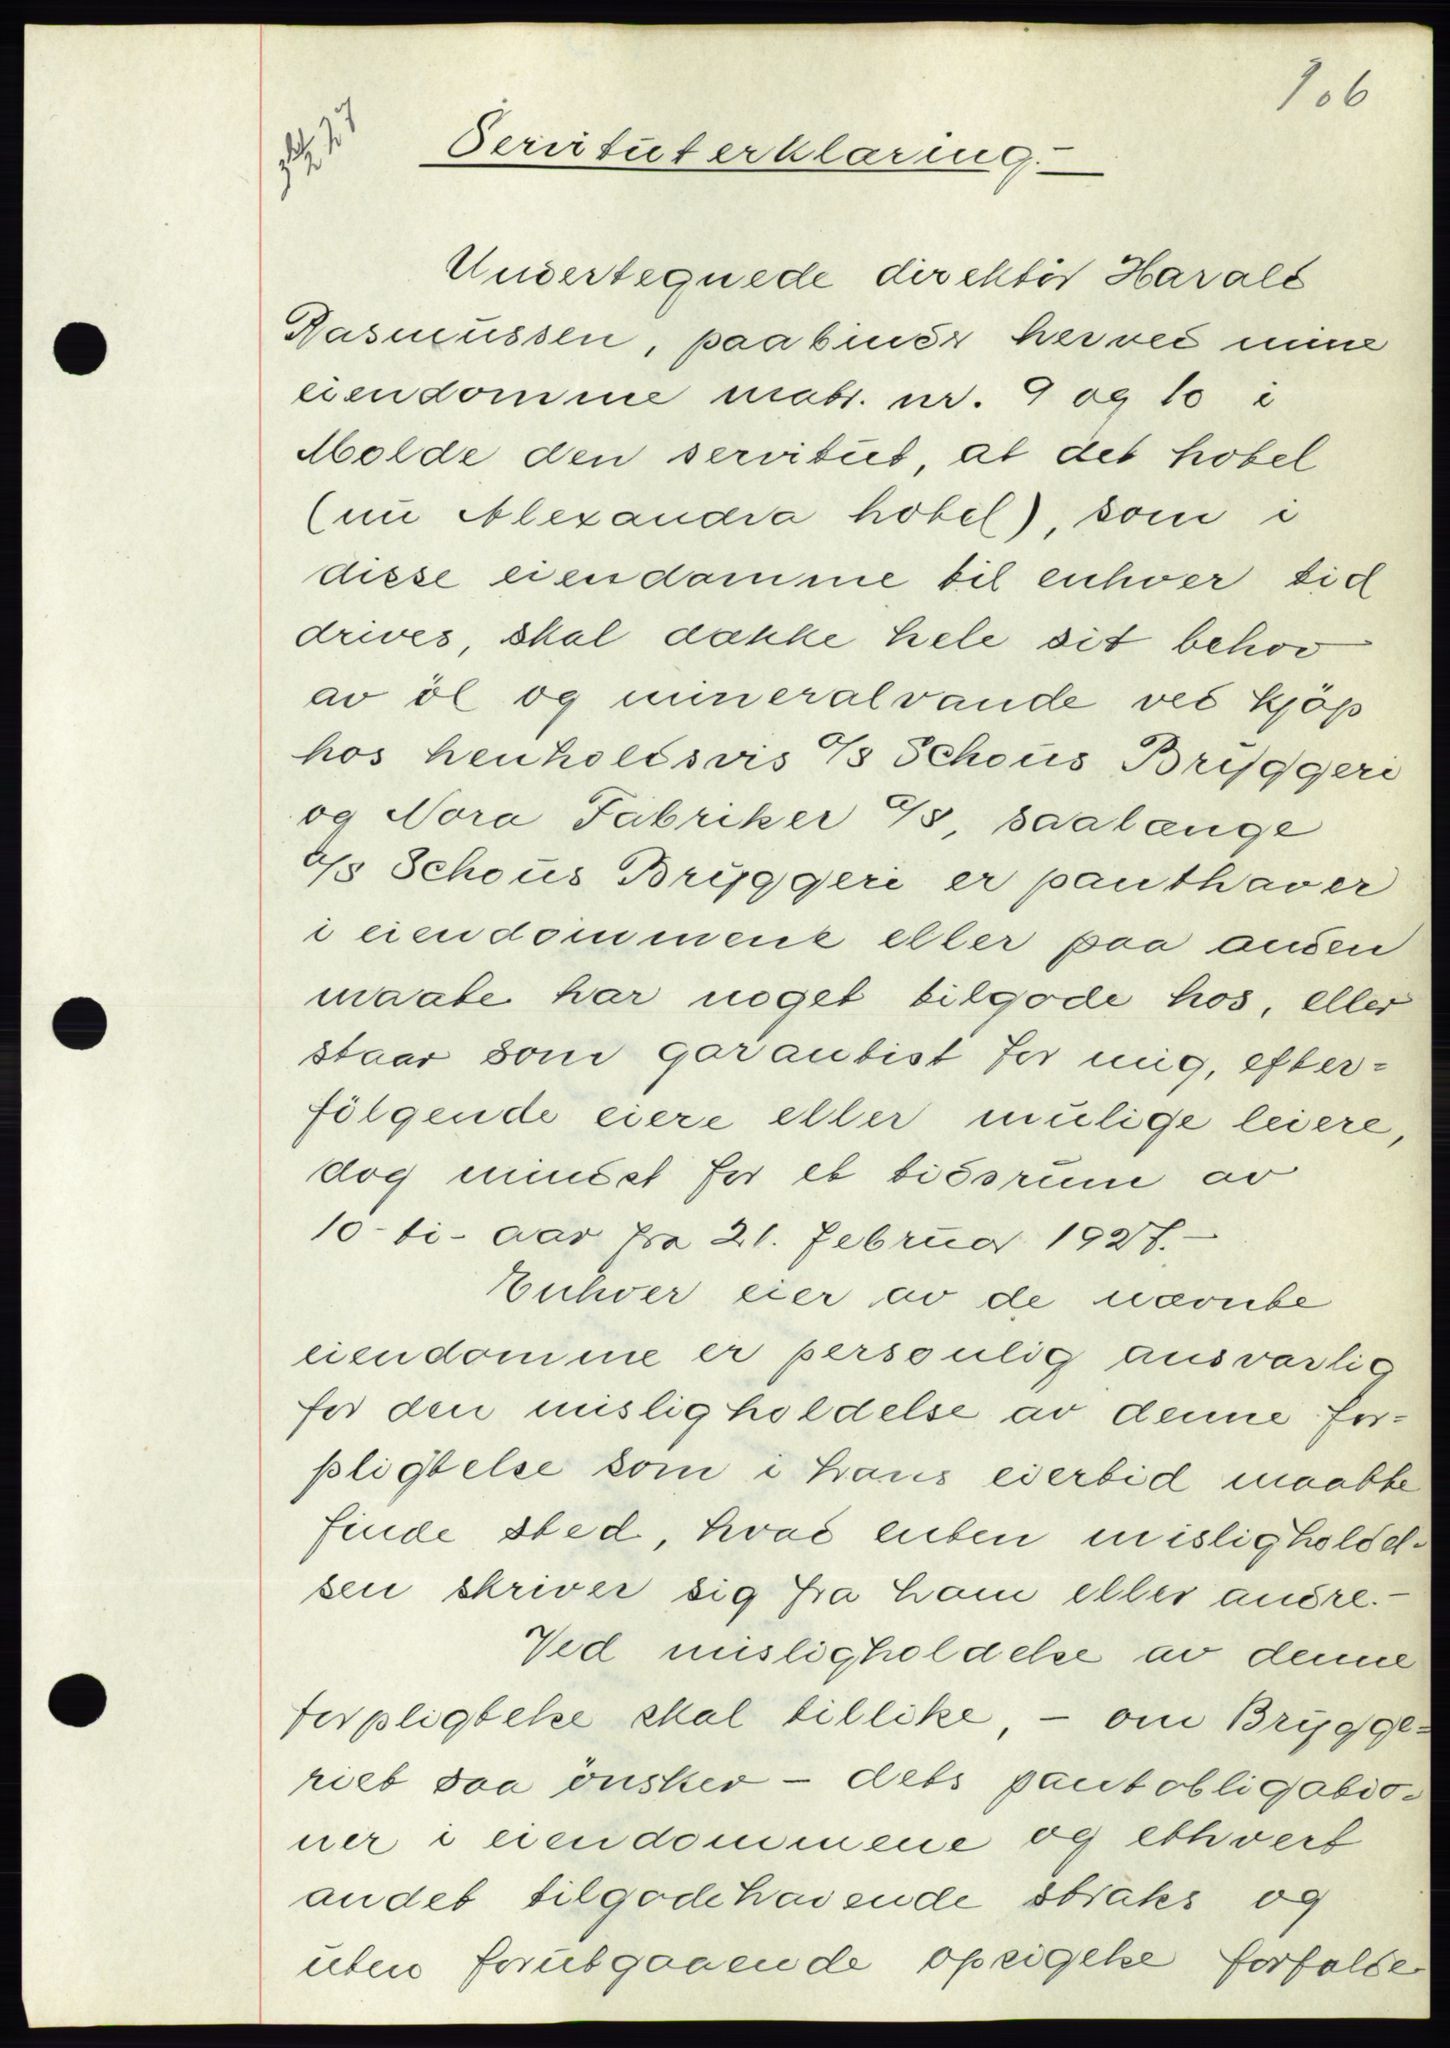 106
Servituterklæring.-
Undertegnede direktör Harald
Rasmussen, paabinder herved mine
eiendomme matr. nr. 9 og 10 i
Molde den servitut, at det hotel
(nu Alexandra hotel), som i
disse eiendomme til enhver tid
drives, skal dække hele sit behov
av öl og mineralvande ved kjöp
hos henholdsvis A/S Schous Bryggeri
og Nora Fabriker A/S, saalænge
A/S Schous Bryggeri er panthaver
i eiendommene eller paa anden
maate har noget tilgode hos, eller
staar som garantist for mig, efter=
fölgende eiere eller mulige leiere,
dog mindst for et tidsrum av
10-ti- aar fra 21. februar 1927.-
Enhver eier av de nævnte
eiendomme er personlig ansvarlig
for den misligholdelse av denne for=
pligtelse som i hans eiertid maatte
finde sted, hvad enten misligholdel-
sen skriver sig fra ham eller andre.-
Ved misligholdelse av denne
forpligtelse skal tillike, - om Brygge=
riet saa önsker - dets pantobligatio=
ner i eiendommene og ethvert
andet tilgodehavende straks og
uten forutgaaende opsigelse forfalde